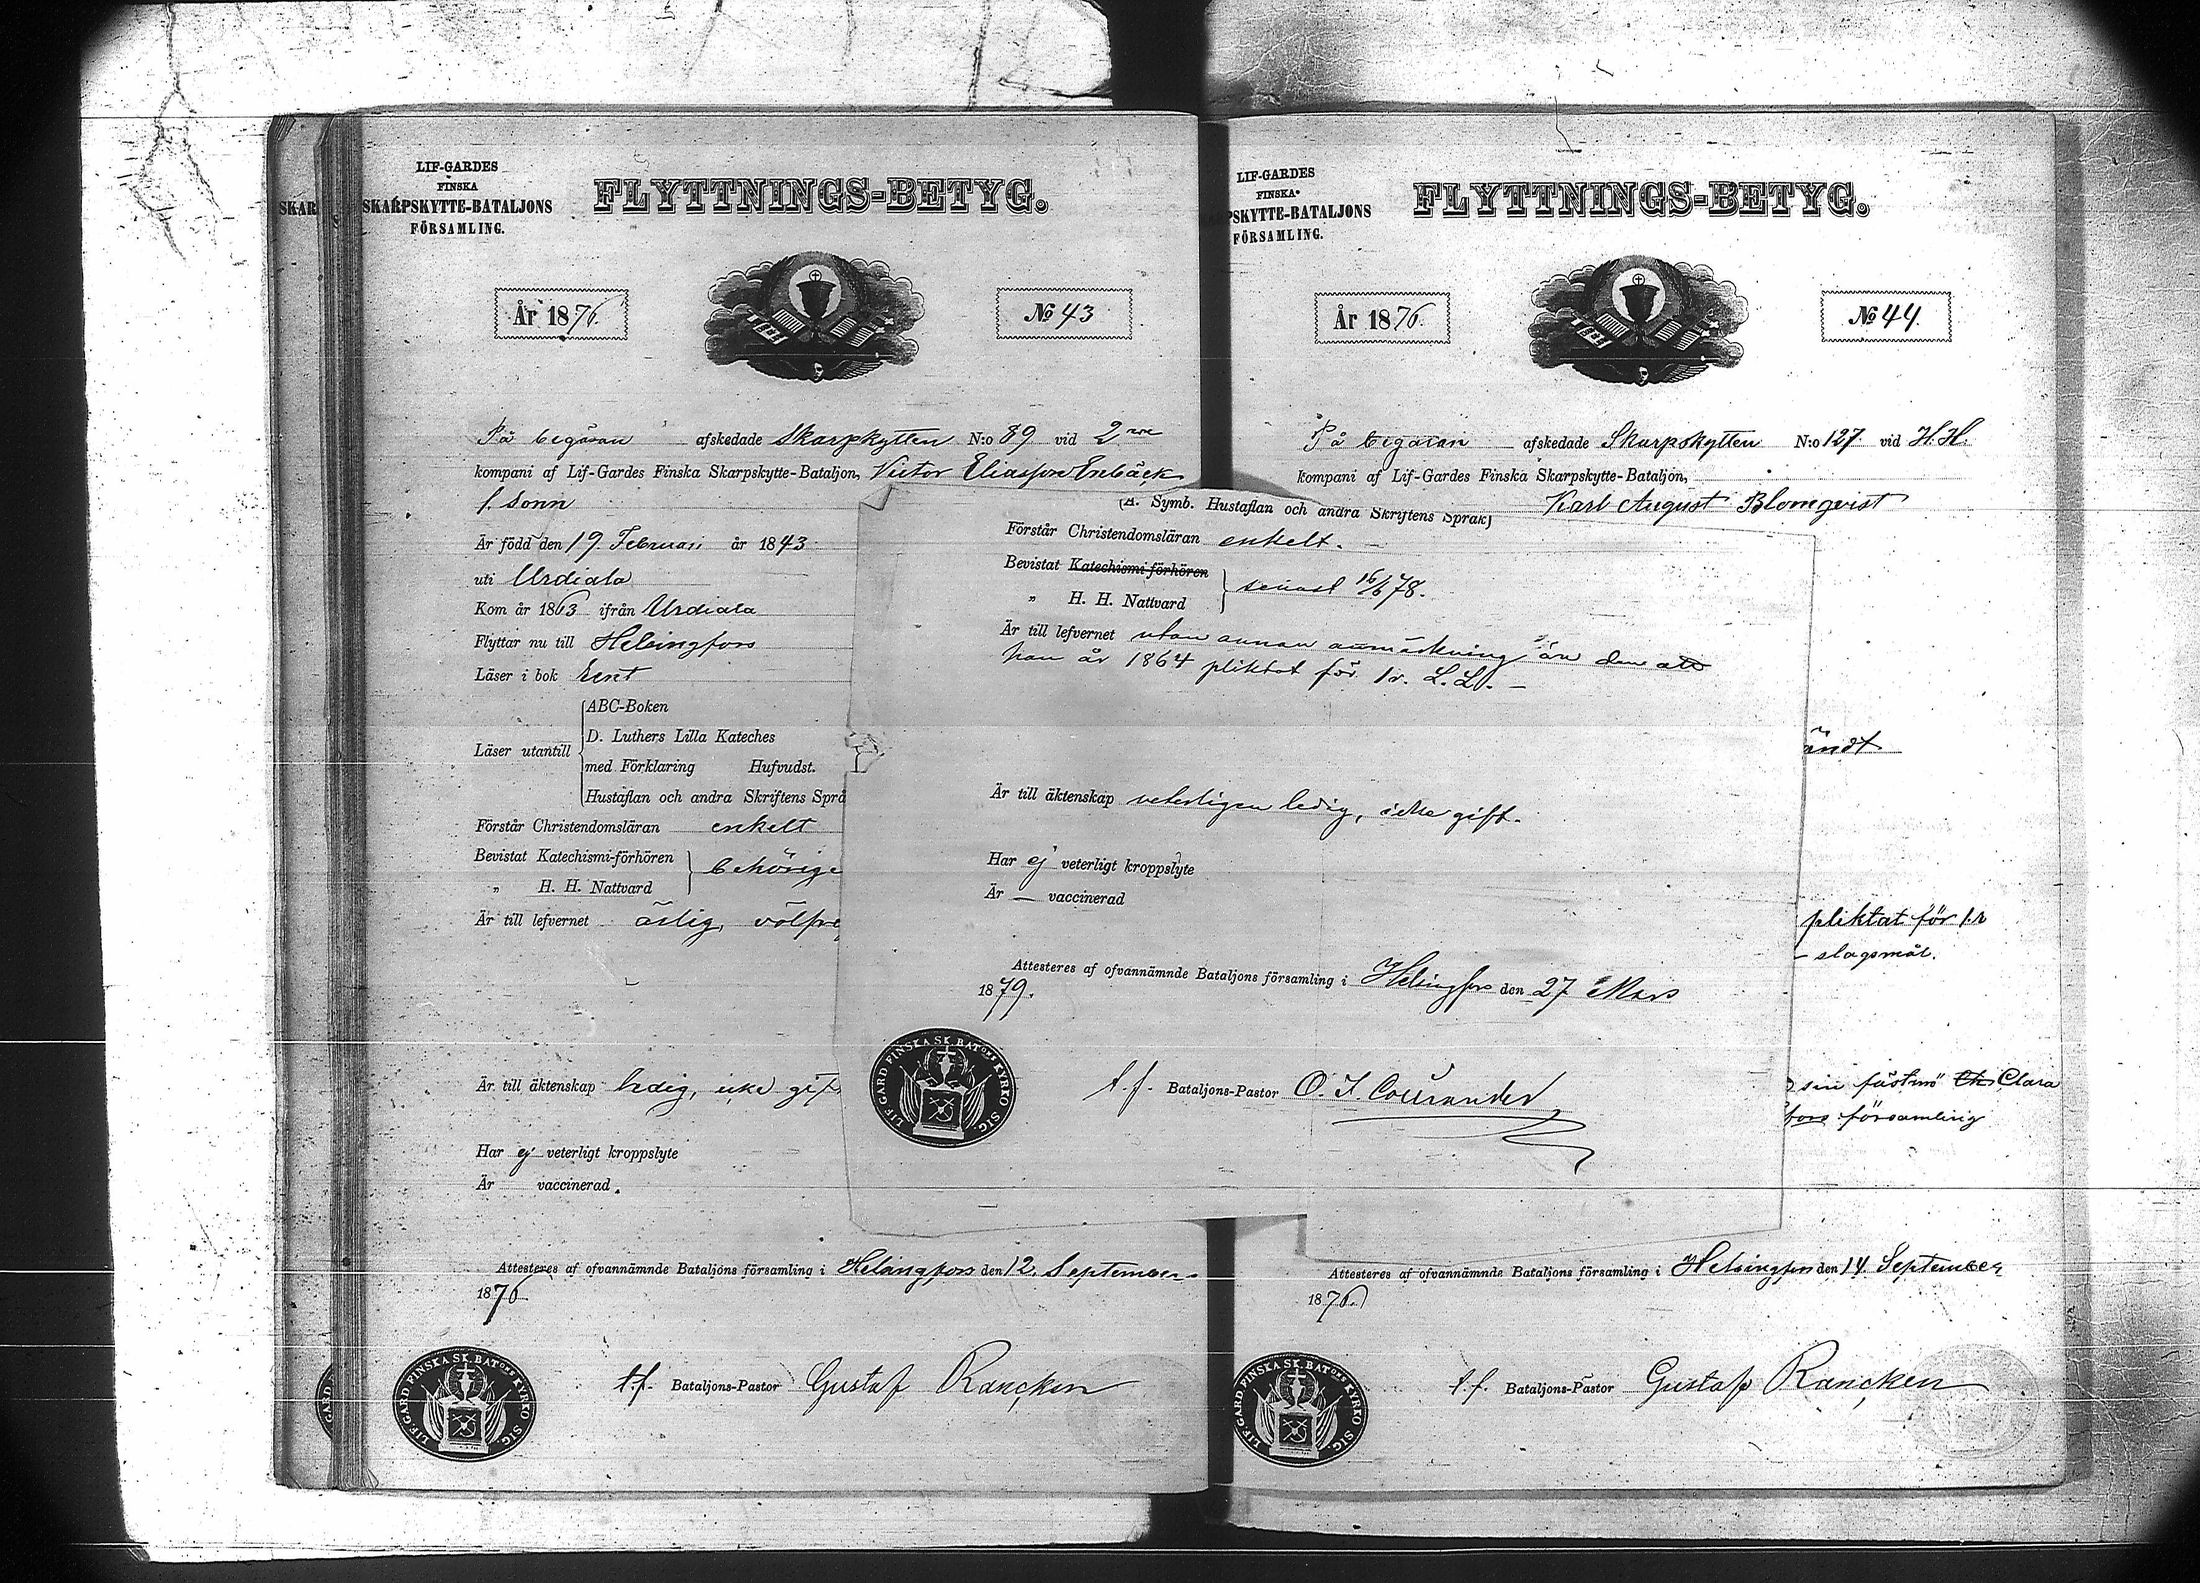 LIF-GARDES
FINSKA
SKARPSKYTTE-BATALJONS
FÖRSAMLING.
FLYTTNINGS-BETYG.
År 1876.
No 43
På begäran afskedade Skarpskytten N:o 89 vid 2
kompani af Lif-Gardes Finska Skarpskytte-Bataljon, Victor Eliasson Enbäck
f. Sonn
Är född den 19 Februari år 1843
uti Urdiala
Kom år 1863 ifrån Urdiala
Flyttar nu till Helsingfors
Läser i bok Rent
ABC-Boken
D. Luthers Lilla Kateches
Läser utantill
med Förklaring Hufvudst.
Hustaflan och andra Skriftens Språ
Förstår Christendomsläran enkelt
Bevistat Katechismi-förhören
" H. H. Nattvard
behörige
Är till lefvernet ärlig, välfre
Är till äktenskap ledig, icke gif
Har ej veterligt kroppslyte
Är vaccinerad.
Attesteres af ofvannämnde Bataljons församling i Helsingfors den 12. September
1876
t.f. Bataljons-Pastor Gustaf Rancken
LIF. GARD. FINSKA SK. BATONS KYRKO SIG.
SKAR
GARD F
(A. Symb. Hustaflan och andra Skriftens Språk)
Förstår Christendomsläran enkelt. –
Bevistat Katechismi-förhören
" H. H. Nattvard
senast 16/6 78.
Är till lefvernet utan annan anmärkning än den att
han år 1864 pliktat för 1r. L.L. –
Är till äktenskap veterligen ledig, icke gift.
Har ej veterligt kroppslyte
Är — vaccinerad
Attesteres af ofvannämnde Bataljons församling i Helsingfors den 27 Mars
1879.
t.f. Bataljons-Pastor
LIF. GARD. FINSKA SK. BATONS KYRKO SIG.
LIF-GARDES
FINSKA
PSKYTTE-BATALJONS
FÖRSAMLING.
FLYTTNINGS-BETYG.
År 1876.
No 44.
På begäran afskedade Skarpskytten N:o 127 vid H.H.
kompani af Lif-Gardes Finska Skarpskytte-Bataljon,
Karl August Blomqvist
ändt
pliktat för 1.r
– slagsmål.
sin fästmö Clara
fors församling
Attesteres af ofvannämnde Bataljons församling i Helsingfors den 14. September
1876.
t.f. Bataljons-Pastor Gustaf Rancken
LIF. GARD. FINSKA SK. BATONS KYRKO SIG.